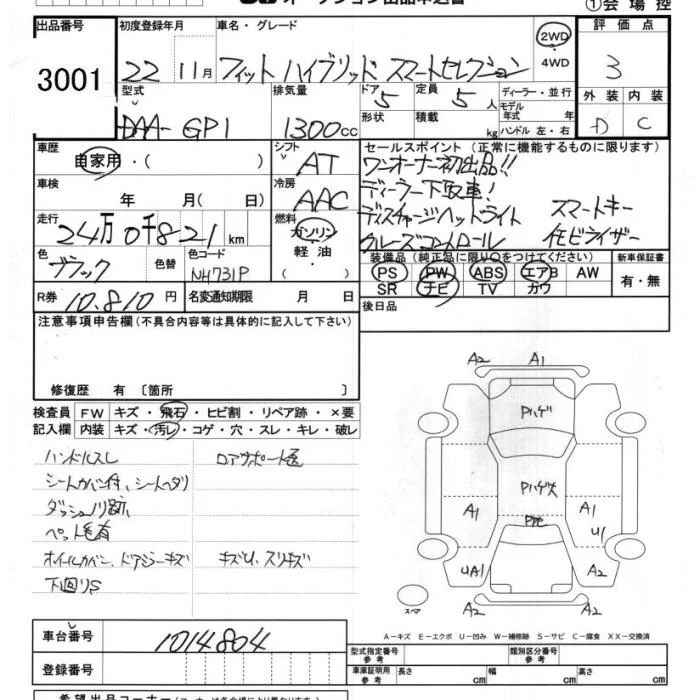 ①会場控
出品番号 初度登録年月 車名・グレード 評価点
3001 22 11月 フィット ハイブリッド スマートセレクション 2WD・4WD 3
型式 排気量 ドア 5 定員 5人 ディーラー・並行 外装 内装
DAA-GP1 1300cc 形状 積載 kg モデル年式 年 D C
ハンドル左・右
車歴 自家用・( ) シフト AT セールスポイント(正常に機能するものに限ります)
ワンオーナー初出品!!
車検 年 月( 日) 冷房 AAC ディーラー下取車!
走行 24万0千821km 燃料 ガソリン・軽油・( ) ディスチャージヘッドライト スマートキー
クルーズコントロール イモビライザー
色 ブラック 色替 色コード NH731P 装備品(純正品に限り○をつけてください) 新車保証書
PS PW ABS エアB AW 有・無
SR ナビ TV カワ
R券 10.810円 名変通知期限 月 日 後日品
注意事項申告欄(不具合内容等は具体的に記入して下さい)
修復歴 有〔箇所 〕
検査員 FW キズ・飛石・ヒビ割・リペア跡・×要
記入欄 内装 キズ・汚レ・コゲ・穴・スレ・キレ・破レ
ハンドルスレ ロアサポート
シートカバー付、シートヘタリ
ダッシュノリ跡
ペット毛有
ホイールカバー、ドアミラーキズ キズU、スリキズ
下回りS
A2 A1
Pハゲ
Pハゲ大
A1 A1
U1
UA1 A2
A2 A2
スペア
A-キズ E-エクボ U-凹み W-補修跡 S-サビ C-腐食 XX-交換済
車台番号 1014804
型式指定番号 参考 類別区分番号 参考
登録番号 車庫証明用 参考 長さ cm 幅 cm 高さ cm
希望出品コーナー